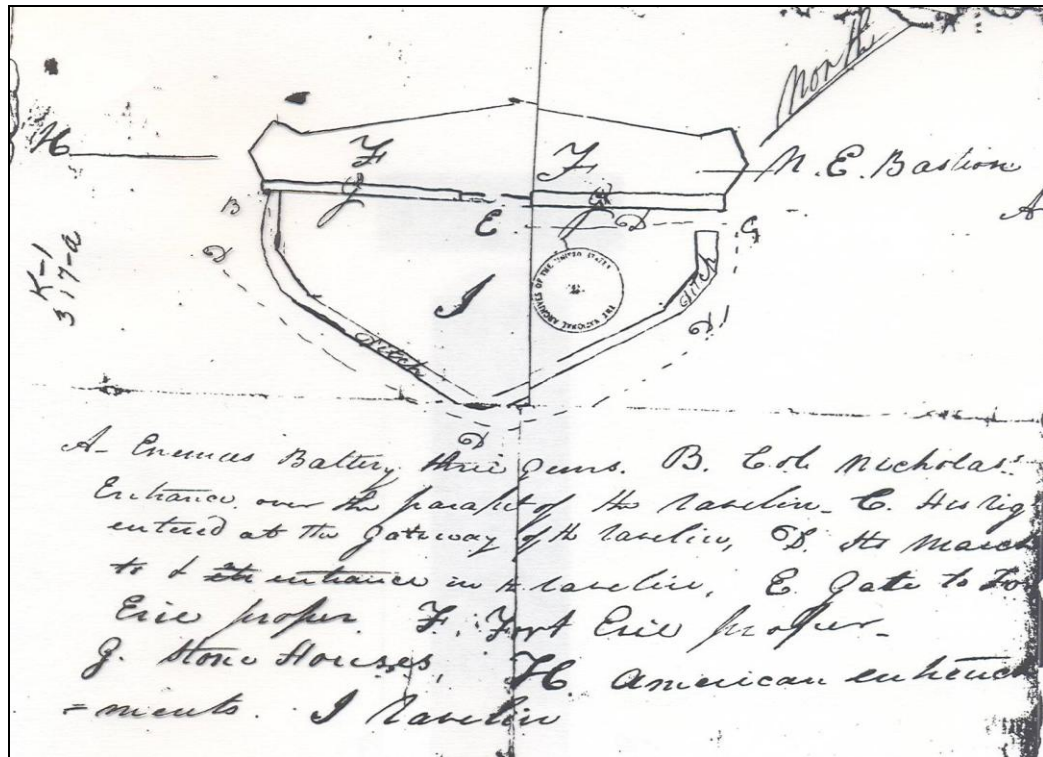 North
H
F
F
N. E. Bastion
G
G
B
E
D
G
A
D
K-1
317-a
I
THE NATIONAL ARCHIVES OF THE UNITED STATES
Ditch
D
Ditch
D
A- Enemies Battery three guns. B. Col. Nicholas'
Entrance over the parapet of the ravelin- C. His
entered at the Gateway of the ravelin, D. His march
to & entrance in ravelin, E. Gate to
Erie proper F. Fort Erie proper-
G. Stone Houses, H. American entrench
=ments. I ravelin